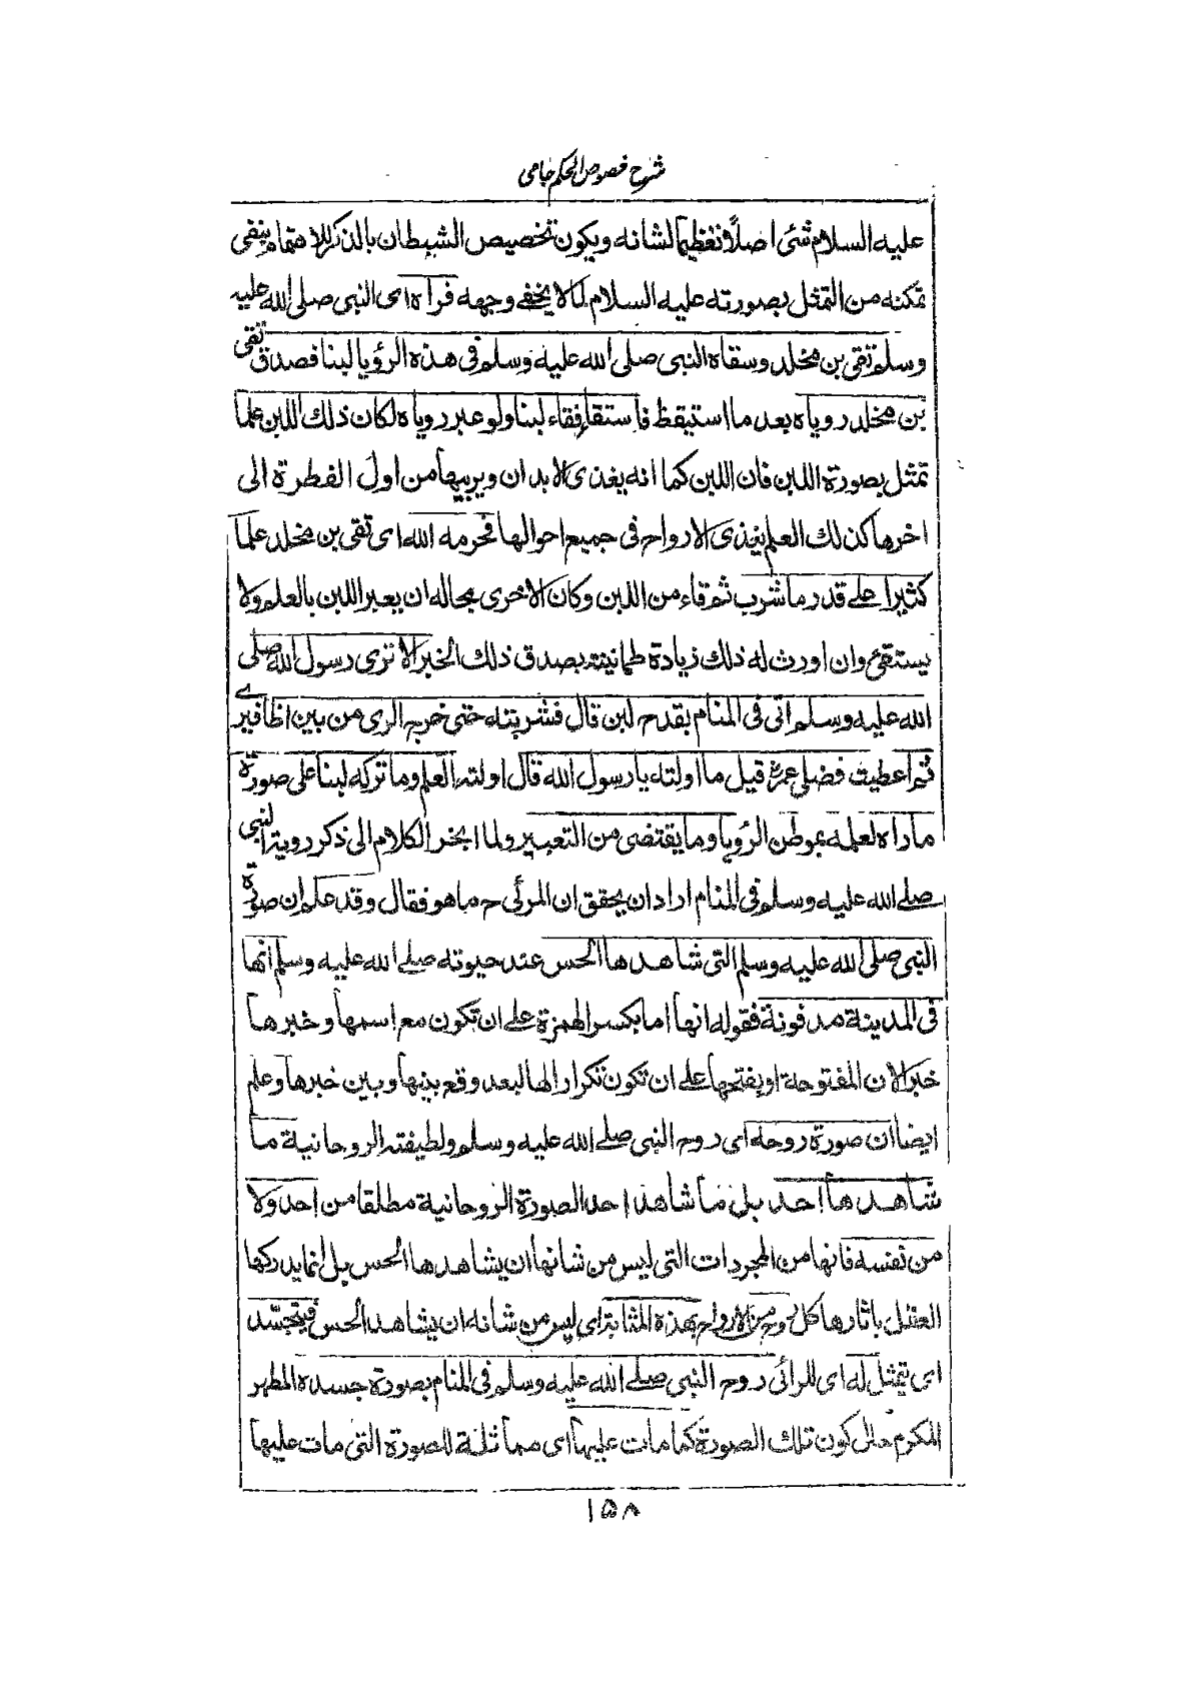 شرح فصوص الحكم جامى
عليه السلام شئ اصلاً تعظيما لشانه ويكون تخصيص الشيطان بالذكر للاهتمام بنفى
تمكنه من التمثل بصورته عليه السلام لما لا يخفى وجهه فرآه اى النبى صلى الله عليه
وسلم تقى بن مخلد وسقاه النبى صلى الله عليه وسلم فى هذه الرؤيا لبنا فصدق تقى
بن مخلد روياه بعد ما استيقظ فاستقاء فقاء لبنا ولو عبر روياه لكان ذلك اللبن علما
تمثل بصورة اللبن فان اللبن كما انه يغذى الابدان ويربيها من اول الفطرة الى
اخرها كذلك العلم يغذى الارواح فى جميع احوالها فحرمه الله اى تقى بن مخلد علما
كثيرا على قدر ما شرب ثم قاء من اللبن وكان الاحرى بحاله ان يعبر اللبن بالعلم ولا
يستقئ وان اورث له ذلك زيادة طمانينة بصدق ذلك الخبر الا ترى رسول الله صلى
الله عليه وسلم اتى فى المنام بقدح لبن قال فشربته حتى خرج الرى من بين اظافيرى
ثم اعطيت فضلى عمر قيل ما اولته يا رسول الله قال اولته العلم وما تركه لبنا على صورة
ما رآه لعلمه بموطن الرؤيا وما يقتضى من التعبير ولما انجر الكلام الى ذكر روية النبى
صلى الله عليه وسلم فى المنام اراد ان يحقق ان المرئى ح ما هو فقال وقد علم ان صورة
النبى صلى الله عليه وسلم التى شاهدها الحس عند حيوته صلى الله عليه وسلم انها
فى المدينة مدفونة فقوله انها اما بكسر الهمزة على ان تكون مع اسمها وخبرها
خبرا لان المفتوحة او بفتحها على ان تكون تكرارا لها لبعد وقع بينها وبين خبرها وعلم
ايضا ان صورة روحه اى روح النبى صلى الله عليه وسلم ولطيفته الروحانية ما
شاهدها احد بل ما شاهد احد الصورة الروحانية مطلقا من احد ولا
من نفسه فانها من المجردات التى ليس من شانها ان يشاهدها الحس بل انما يدركها
العقل باثارها كل روح من الارواح بهذه المثابة اى ليس من شانه ان يشاهد الحس فيتجسد
اى يتمثل له اى للرائى روح النبى صلى الله عليه وسلم فى المنام بصورة جسده المطهر
المكرم حال كون تلك الصورة كما مات عليها اى مماثلة للصورة التى مات عليها
١٥٨